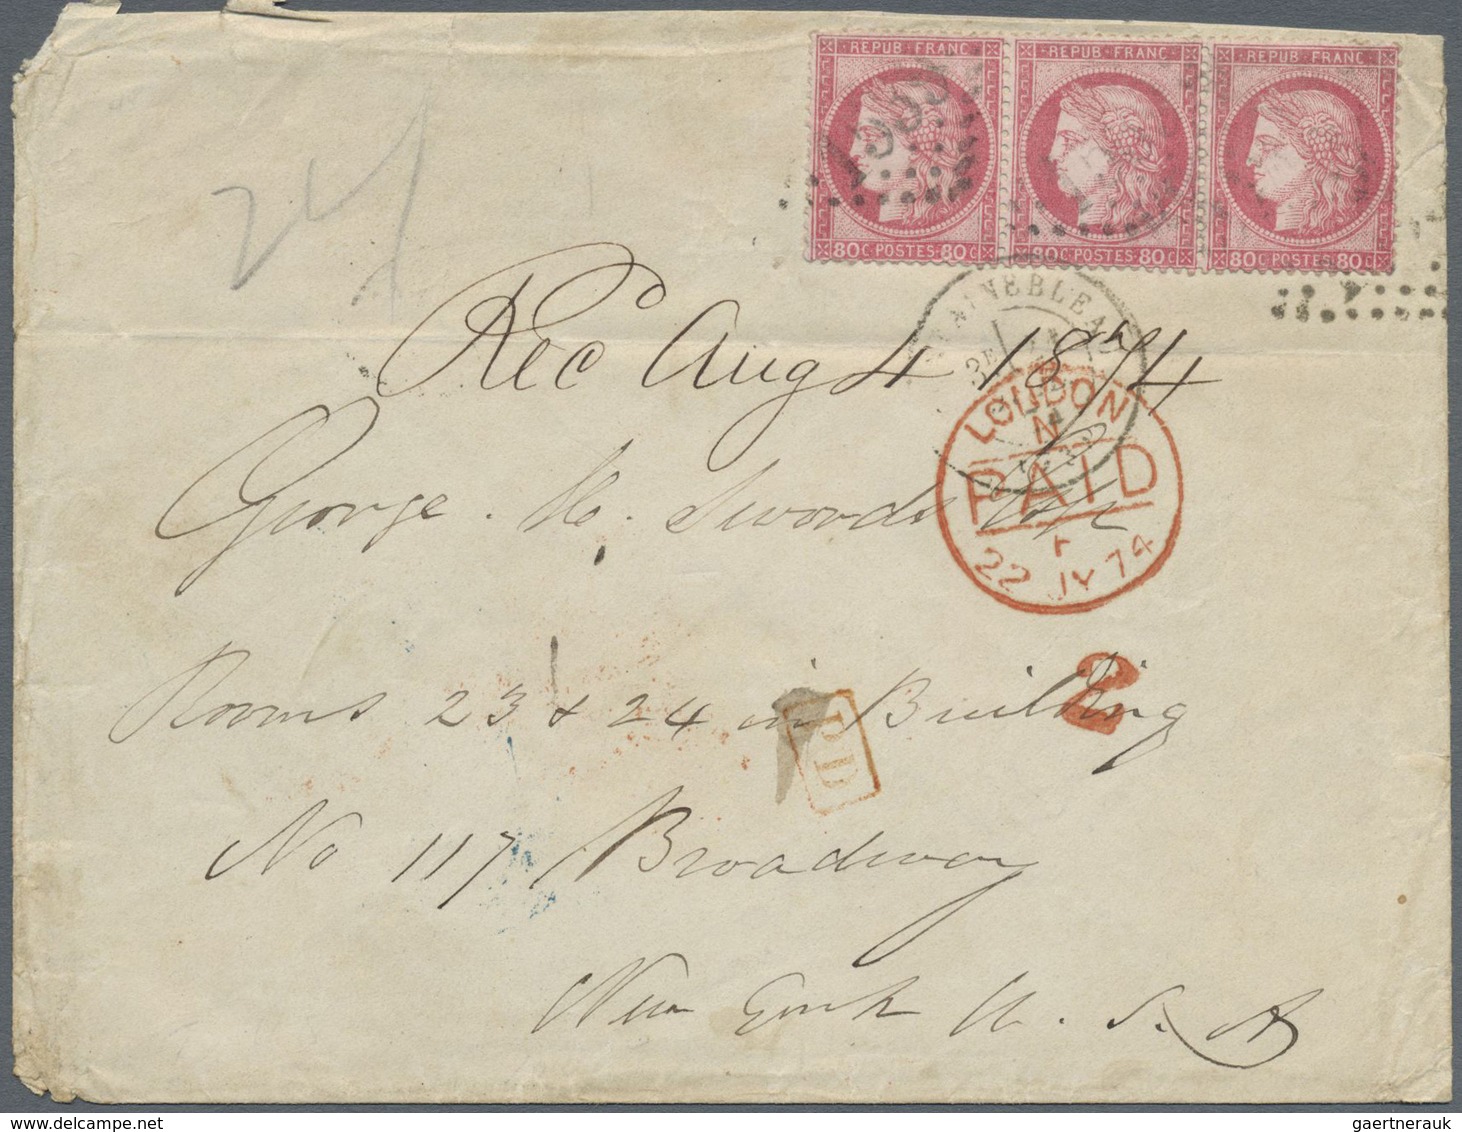 REPUB·FRANC REPUB·FRANC REPUB·FRANC
80C·POSTES·80C 80C·POSTES·80C 80C·POSTES·80C
24
Rec Aug 4 1874
LONDON
N
PAID
22 JY 74
George. H. Swords Esq
2
Rooms 23 & 24 in Building
PD
No 117 Broadway
New York U. S. A
gaertnerauk